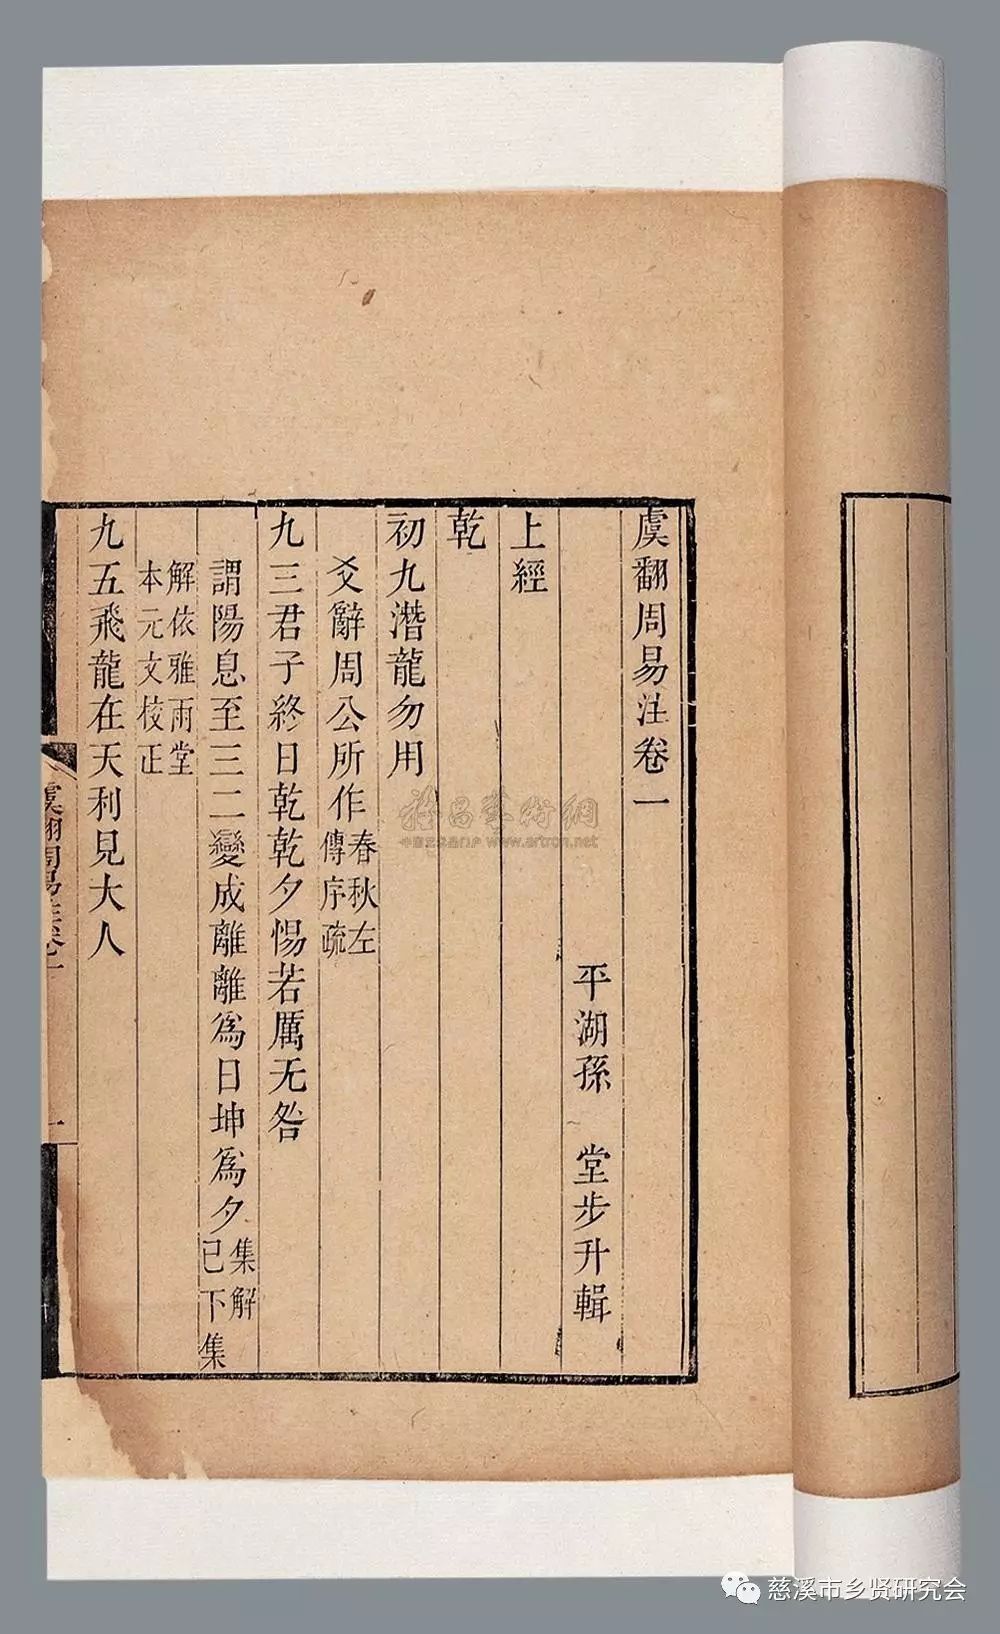 虞翻周易注卷一
平湖孫 堂步升輯
上經
乾
初九潛龍勿用
爻辭周公所作春秋左傳序疏
九三君子終日乾乾夕惕若厲无咎
謂陽息至三二變成離離爲日坤爲夕集解已下集
解依雅雨堂本元文校正
九五飛龍在天利見大人
虞翻周易注卷一
一
雅昌藝術網
中国艺术品门户 www.artron.net
慈溪市乡贤研究会